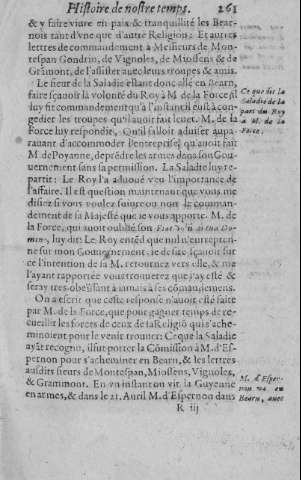 Histoire de nostre temps. 261
& y faire viure en paix & tranquilité les Bear-
nois tant d'vne que d'autre Religion: Et autres
lettres de commandement à Messieurs de Mon-
tespan Gondrin, de Vignoles, de Miossens & de
Gramont, de l'assister auec leurs troupes & amis.
Le sieur de la Saladie estant donc allé en Bearn,
faire sçauoir la volonté du Roy à M. de la Force, il
luy fit commandement qu'à l'instant il eust à con-
gedier les troupes qu'il auoit fait leuer. M. de la
Force luy respondit, Qu'il falloit aduiser aupa-
rauant d'accommoder l'entreprise, qu'auoit fait
M. de Poyanne, de prēdre les armes dans son Gou-
uernement sans sa permission. La Saladie luy re-
partit: Le Roy l'a aduoüé veu l'importance de
l'affaire. Il est question maintenant que vous me
disiez si vous voulez suiure ou non le comman-
dement de sa Majesté que ie vous apporte. M. de
la Force, qui auoit oublié son
luy dit: Le Roy entēd que nul n'entrepren-
ne sur mon Gouuernement: ie desire sçauoir sur
ce l'intention de sa M. retournez vers elle, & me
l'ayant rapportée vous trouuerez que j'ay esté &
seray tres-obeïssant à iamais à ses cōmandemens.
On a escrit que ceste response n'auoit esté faite
par M. de la Force, que pour gagner temps de re-
cueillir les forces de ceux de sa Religiō qui s'ache-
minoient pour le venir trouuer: Ce que la Saladie
ayāt recognu, il fut porter la Cōmission à M. d'Es-
pernon pour s'acheminer en Bearn, & les lettres
ausdits sieurs de Montespan, Miossens, Vignoles,
& Grammont. En vn instant on vit la Guyenne
en armes, & dans le 21. Auril M. d'Espernon dans
R iij
Ce que dit la
Saladie de la
part du Roy
à M. de la
Force.
M. d'Esper-
non va en
Bearn, auec